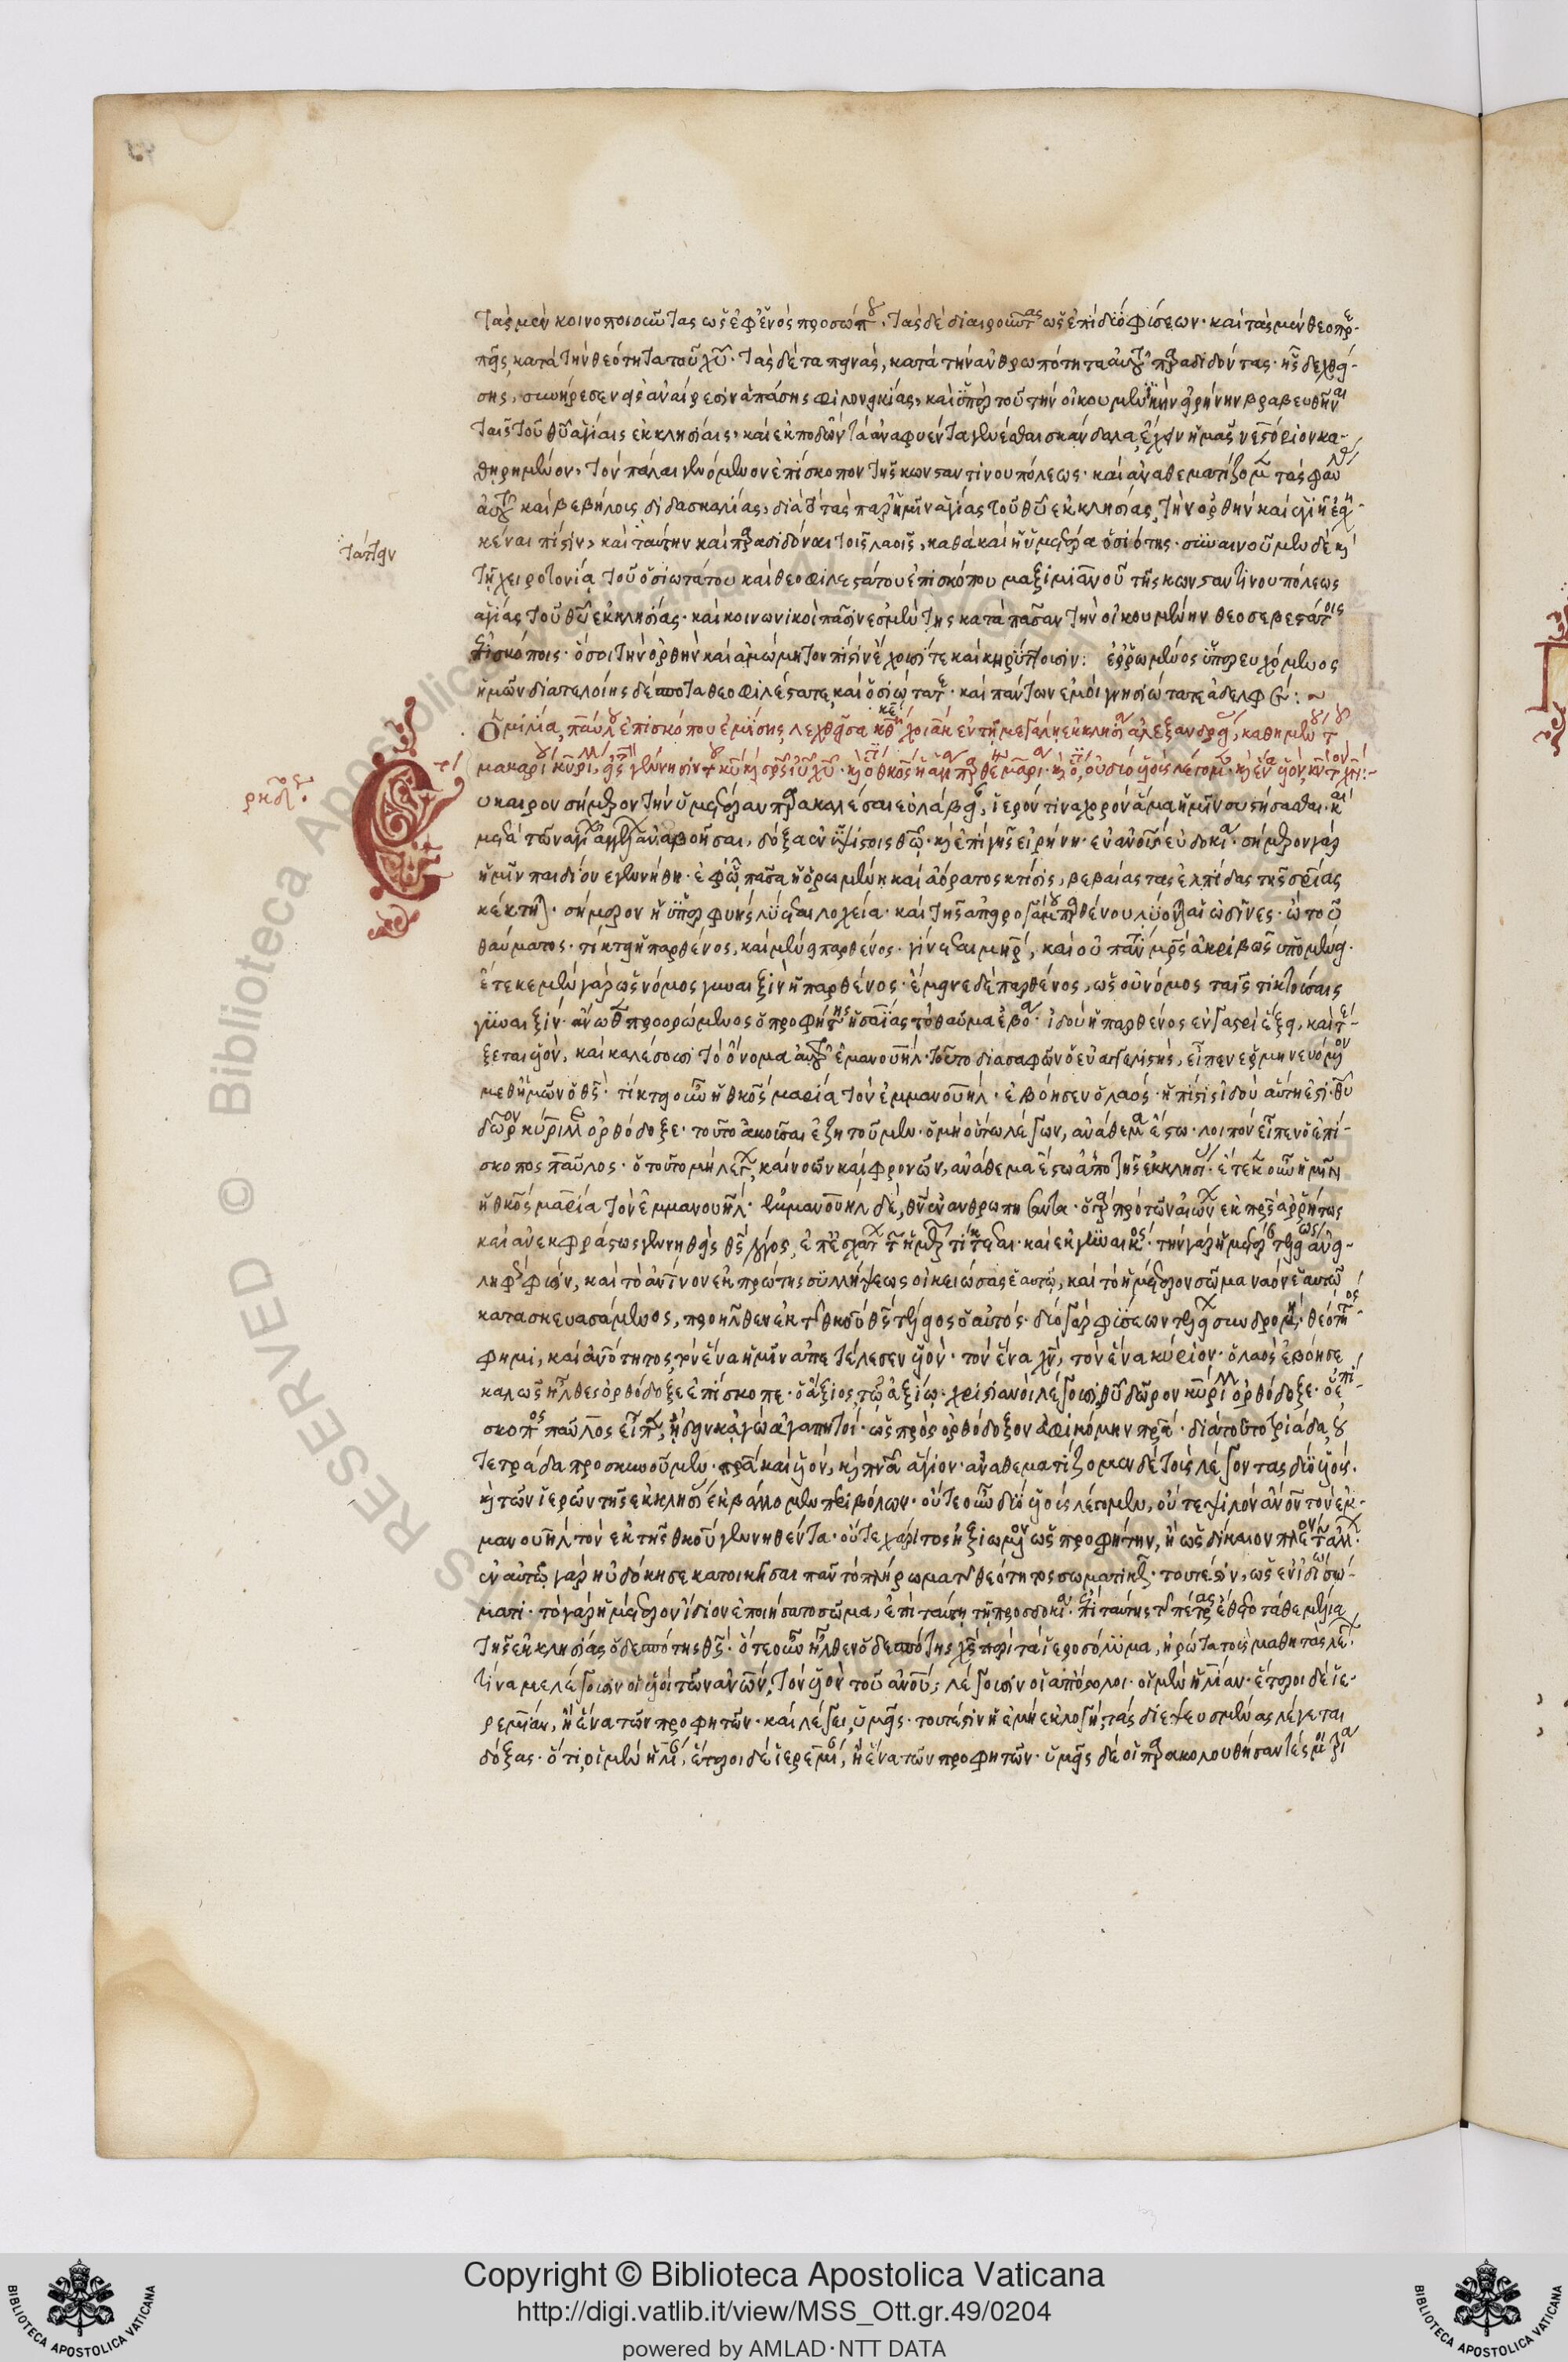 τὰς μὲν κοινοποιοῦντας ὡς ἐφ' ἑνὸς προσώπου, τὰς δὲ διαιροῦντας ὡς ἐπὶ δύο φύσεων· καὶ τὰς μὲν θεοπρε-
πεῖς κατὰ τὴν θεότητα τοῦ χυ· τὰς δὲ ταπεινὰς, κατὰ τὴν ἀνθρωπότητα αὐτοῦ παραδιδόντας·
σης, συνήρεσεν εἰς ἀναίρεσιν ἁπάσης φιλονεικίας, καὶ ὑπὲρ τοῦ τὴν οἰκουμενικὴν εἰρήνην βραβευθῆναι
ταῖς τοῦ θυ ἁγίαις ἐκκλησίαις, καὶ ἐκποδὼν τὰ ἀναφυέντα γενέσθαι σκάνδαλα, ἔχειν ἡμᾶς νεστόριον κα-
θηρημένον, τὸν πάλαι γενόμενον ἐπίσκοπον τῆς κωνσταντινουπόλεως· καὶ ἀναθεματίζομεν τὰς φαύλας
αὐτοῦ καὶ βεβήλους διδασκαλίας, διὰ τὸ τὰς παρ' ἡμῖν ἁγίας τοῦ θυ ἐκκλησίας, τὴν ὀρθὴν καὶ ὑγιῆ ἐσχη-
κέναι πίστιν, καὶ ταύτην καὶ παραδιδόναι τοῖς λαοῖς, καθὰ καὶ ἡ ὑμετέρα ὁσιότης· συναινοῦμεν δὲ καὶ
τῇ χειροτονίᾳ τοῦ ὁσιωτάτου καὶ θεοφιλεστάτου ἐπισκόπου μαξιμιανοῦ τῆς κωνσταντινουπόλεως
ἁγίας τοῦ θυ ἐκκλησίας· καὶ κοινωνικοὶ πᾶσίν ἐσμεν τοῖς κατὰ πᾶσαν τὴν οἰκουμένην θεοσεβεστάτοις
ἐπισκόποις· ὅσοι τὴν ὀρθὴν καὶ ἀμώμητον πίστιν ἔχουσί τε καὶ κηρύττουσιν: ἐρρωμένος ὑπερευχόμενος
ἡμῶν διατελοίης δέσποτα θεοφιλέστατε, καὶ ὁσιώτατε· καὶ πάντων ἐμοὶ γνησιώτατε ἀδελφέ: ~
Ὁμιλία παύλου ἐπισκόπου ἐμίσης λεχθεῖσα κθ χοιὰκ ἐν τῇ μεγάλῃ ἐκκλησίᾳ ἀλεξανδρείας, καθημένου τοῦ
μακαρίου κυρίλλου, εἰς τὴν γέννησιν τοῦ κυ καὶ σρς ἰυ χυ· καὶ ὅτι θκος ἡ ἁγία παρθένος μαρία· καὶ ὅτι, οὐ δύο υἱοὺς λέγομεν· καὶ ἕνα υἱὸν κν τὸν χν:-
υκαιρον σήμερον τὴν ὑμετέραν παρακαλέσαι εὐλάβειαν, ἱερόν τινα χορὸν ἅμα ἡμῖν συστήσασθαι· καὶ
μετὰ τῶν ἁγίων ἀγγέλων ἀναβοῆσαι, δόξα ἐν ὑψίστοις θω· καὶ ἐπὶ γῆς εἰρήνη· ἐν ἀνοις εὐδοκία· σήμερον γὰρ
ἡμῖν παιδίον ἐγεννήθη· ἐφ' ᾧ πᾶσα ἡ ὁρωμένη καὶ ἀόρατος κτίσις, βεβαίας τὰς ἐλπίδας τῆς σριας
κέκτηται· σήμερον ἡ ὑπερφυὴς λύεται λοχεία· καὶ τῆς ἀπειρογάμου παρθένου λύονται αἱ ὠδῖνες· ὢ τοῦ
θαύματος· τίκτει ἡ παρθένος, καὶ μένει παρθένος· γίνεται μηρ, καὶ οὐ πάντη μρς ἀκριβῶς ὑπομένει·
ἔτεκε μὲν γὰρ ὡς νόμος γυναιξὶν ἡ παρθένος· ἔμεινε δὲ παρθένος, ὡς οὐ νόμος ταῖς τικτούσαις
γυναιξίν· ἄνωθεν προορώμενος ὁ προφήτης ἡσαΐας τὸ θαῦμα ἐβόα· ἰδοὺ ἡ παρθένος ἐν γαστρὶ ἕξει, καὶ τέ-
ξεται υἱὸν, καὶ καλέσουσι τὸ ὄνομα αὐτοῦ ἐμανουήλ· τοῦτο διασαφῶν ὁ εὐαγγελιστὴς, εἶπεν ἑρμηνευόμενον
μεθ' ἡμῶν ὁ θς· τίκτει οὖν ἡ θκος μαρία τὸν ἐμμανουήλ· ἐβόησεν ὁ λαός· ἡ πίστις ἰδοὺ αὕτη ἐστί· θυ
δῶρον κύριλλε ὀρθόδοξε· τοῦτο ἀκοῦσαι ἐζητοῦμεν· ὁ μὴ οὕτω λέγων, ἀνάθεμα ἔστω· λοιπὸν εἶπεν ὁ ἐπί-
σκοπος παῦλος· ὁ τοῦτο μὴ λέγων, καὶ νοῶν καὶ φρονῶν, ἀνάθεμα ἔστω ἀπὸ τῆς ἐκκλησίας· ἔτεκεν οὖν ἡμῖν
ἡ θκος μαρία τὸν ἐμμανουήλ· ἐμμανουὴλ δὲ, θν ἐνανθρωπήσαντα· ὁ γὰρ πρὸ τῶν αἰώνων ἐκ πρς ἀρρήτως
καὶ ἀνεκφράστως γεννηθεὶς θς λόγος, ἐπ' ἐσχάτων τῶν ἡμερῶν τίκτεται καὶ ἐκ γυναικός· τὴν γὰρ ἡμετέραν τελείως ἀνει-
ληφὼς φύσιν, καὶ τὸ ἀνινον ἐκ πρώτης συλλήψεως οἰκειώσας ἑαυτῷ, καὶ τὸ ἡμέτερον σῶμα ναὸν ἑαυτῷ
κατασκευασάμενος, προῆλθεν ἐκ τῆς θκου θς τέλειος ὁ αὐτός· δύο γὰρ φύσεων τελείων συνδρομὴ, θεότητος
φημὶ, καὶ ἀνοτητος, τὸν ἕνα ἡμῖν ἀπετέλεσεν υἱόν· τὸν ἕνα χν, τὸν ἕνα κύριον· ὁ λαὸς ἐβόησε
καλῶς ἦλθες ὀρθόδοξε ἐπίσκοπε· ὁ ἄξιος τῷ ἀξίῳ· χριστιανοὶ λέγουσι, θυ δῶρον κύριλλε ὀρθόδοξε· ὁ ἐπί-
σκοπος παῦλος εἶπεν, ᾔδειν κἀγὼ ἀγαπητοί· ὡς πρὸς ὀρθόδοξον ἀφικόμην πρα· διὰ τοῦτο τριάδα, οὐ
τετράδα προσκυνοῦμεν· πρα καὶ υἱόν, καὶ πνα ἅγιον· ἀναθεματίζομεν δὲ τοὺς λέγοντας δύο υἱούς·
καὶ τῶν ἱερῶν τῆς ἐκκλησίας ἐκβάλλομεν περιβόλων· οὔτε οὖν δύο υἱοὺς λέγομεν, οὔτε ψιλὸν ἀνον τὸν ἐμ-
μανουὴλ τὸν ἐκ τῆς θκου γεννηθέντα· οὔτε χάριτος ἠξιωμένον ὡς προφήτην, ἢ ὡς δίκαιον
ἐν αὐτῷ γὰρ ηὐδόκησε κατοικῆσαι πᾶν τὸ πλήρωμα τῆς θεότητος σωματικῶς· τουτέστιν, ὡς ἐν ἰδίῳ σώ-
ματι· τὸ γὰρ ἡμέτερον ἴδιον ἐποιήσατο σῶμα, ἐπὶ ταύτῃ τῇ προσδοκίᾳ· ἐπὶ ταύτης τῆς πέτρας ἐτέθη τὰ θεμέλια
τῆς ἐκκλησίας ὁ δεσπότης θς· ὅτε οὖν ἦλθεν ὁ δεσπότης χς περὶ τὰ ἱεροσόλυμα, ἠρώτα τοὺς μαθητὰς λέγων·
τίνα με λέγουσιν οἱ υἱοὶ τῶν ἀνων, τὸν υἱὸν τοῦ ἀνου; λέγουσιν οἱ ἀπόστολοι· οἱ μὲν ἡλίαν· ἕτεροι δὲ ἱε-
ρεμίαν, ἢ ἕνα τῶν προφητῶν· καὶ λέγει, ὑμεῖς· τουτέστιν ἡ ἐμὴ ἐκλογὴ, τὰς διεψευσμένας λέγεται
δόξας· ὅτι, οἱ μὲν ἡλίαν, ἕτεροι δὲ ἱερεμίαν, ἢ ἕνα τῶν προφητῶν· ὑμεῖς δὲ οἱ παρακολουθήσαντές μοι